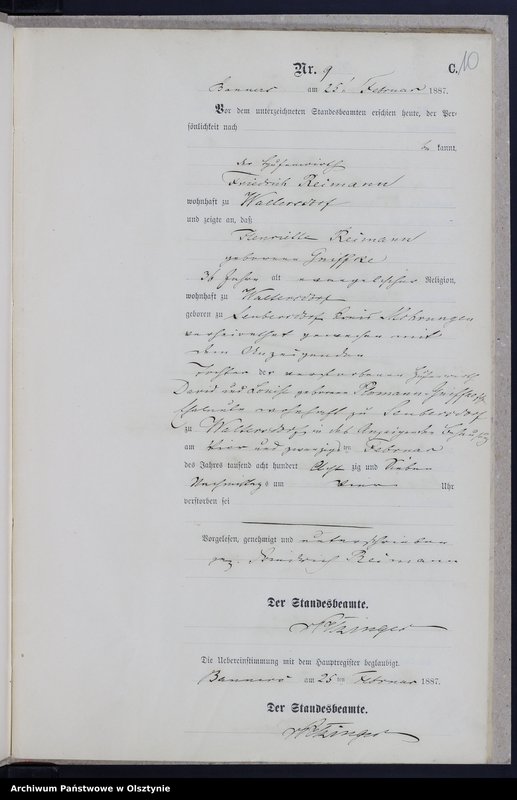 Nr. 9
C. 10
Banners am 25t Februar 1887.
Vor dem unterzeichneten Standesbeamten erschien heute, der Per-
sönlichkeit nach
be kannt,
der Hufenwirth
Friedrich Reimann
wohnhaft zu Waltersdorf
und zeigte an, daß
Henriette Reimann
geborene
36 Jahre alt evangelischer Religion,
wohnhaft zu Waltersdorf
geboren zu Kreis Mohrungen
verheirathet gewesen mit
dem Anzeigenden
Tochter der verstorbenen Hufenwirth
David und Louise geborene
Eheleute wohnhaft zu
zu Waltersdorf in des Anzeigenden
am vier und zwanzigsten Februar
des Jahres tausend acht hundert Acht zig und Sieben
Nachmittags um vier Uhr
verstorben sei
Vorgelesen, genehmigt und unterschrieben
gez. Friedrich Reimann
Der Standesbeamte.
Die Uebereinstimmung mit dem Hauptregister beglaubigt.
Banners am 25 ten Februar 1887.
Der Standesbeamte.
Archiwum Państwowe w Olsztynie